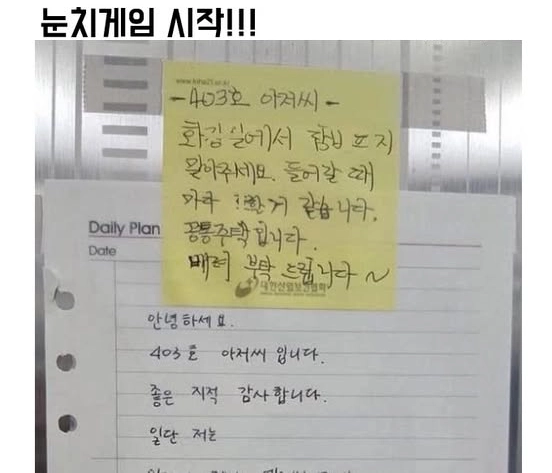 눈치게임 시작!!!
www.kiha21.or.kr
-403호 아저씨-
화장실에서 담배 피지
말아주세요. 들어갈 때
마다 같습니다.
공동주택 입니다.
배려 부탁 드립니다~
대한산업보건협회
Daily Plan
Date
안녕하세요.
403호 아저씨 입니다.
좋은 지적 감사합니다.
일단 저는